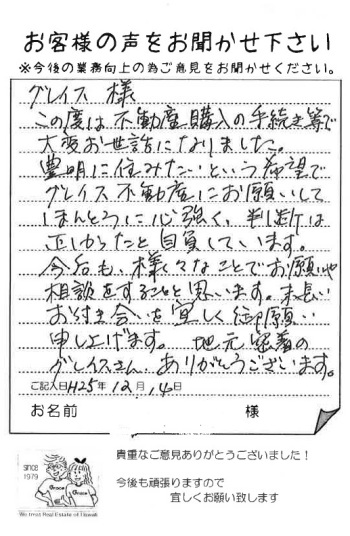 お客様の声をお聞かせ下さい
※今後の業務向上の為ご意見をお聞かせください。
グレイス 様
この度は不動産購入の手続き等で
大変お世話になりました。
豊明に住みたいという希望で
グレイス不動産にお願いして
ほんとうに心強く、判断は
正しかったと自負しています。
今后も、様々なことでお願いや
相談をすることと思います。末長い
お付き合いを宜しく御願い
申し上げます。 地元密着の
グレイスさん、ありがとうございます。
ご記入日 H25年 12月 14日
お名前 様
since
1979
Grace
Grace
We Trust Real Estate of
貴重なご意見ありがとうございました！
今後も頑張りますので
宜しくお願い致します